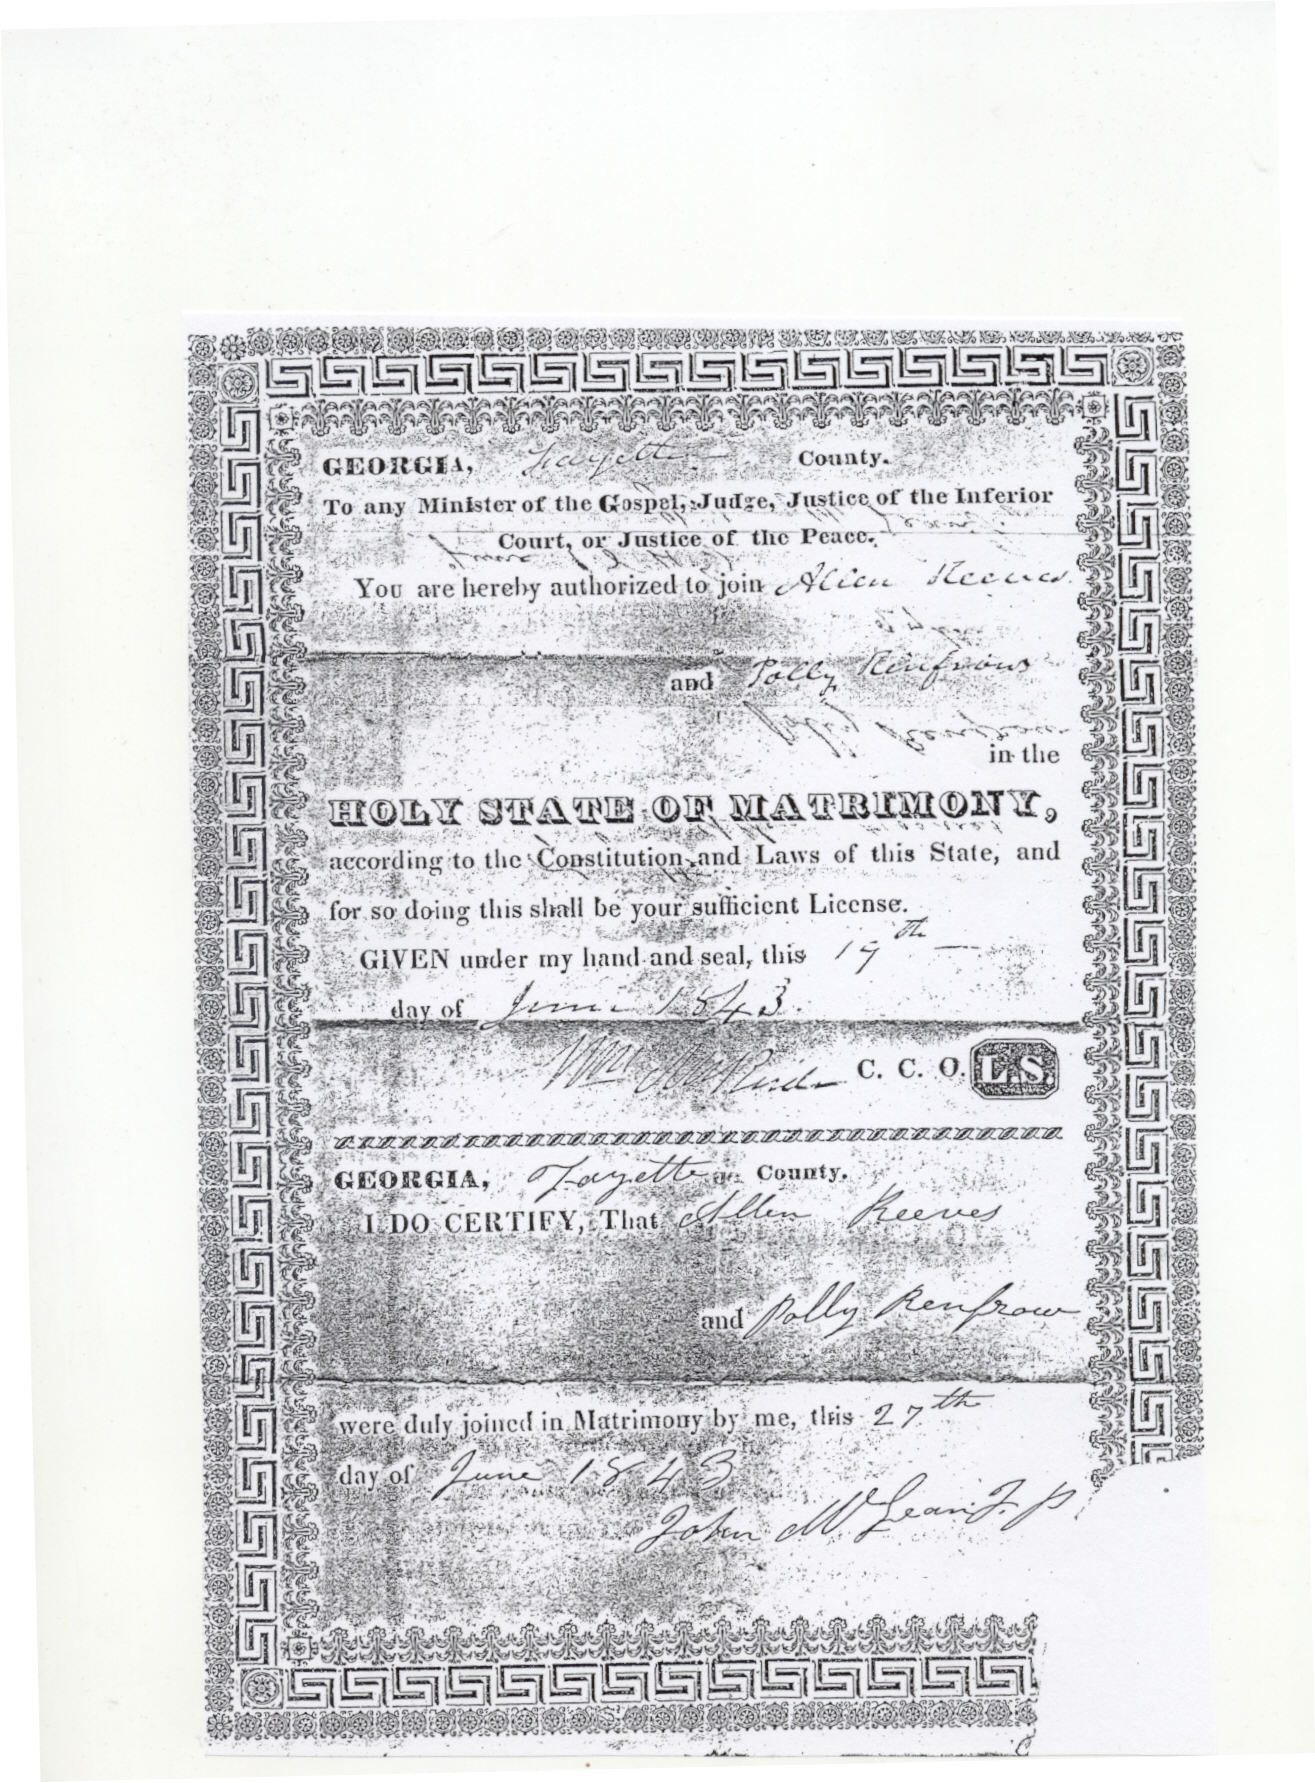 GEORGIA, Fayette County.
To any Minister of the Gospel, Judge, Justice of the Inferior
Court, or Justice of the Peace.
You are hereby authorized to join Allen Reeves
and Polly Renfrow
in the
HOLY STATE OF MATRIMONY,
according to the Constitution and Laws of this State, and
for so doing this shall be your sufficient License.
GIVEN under my hand and seal, this 19th
day of June 1843.
Wm C. C. O. L.S.
GEORGIA, Fayette County.
I DO CERTIFY, That Allen Reeves
and Polly Renfrow
were duly joined in Matrimony by me, this 27th
day of June 1843
John McLean J. P